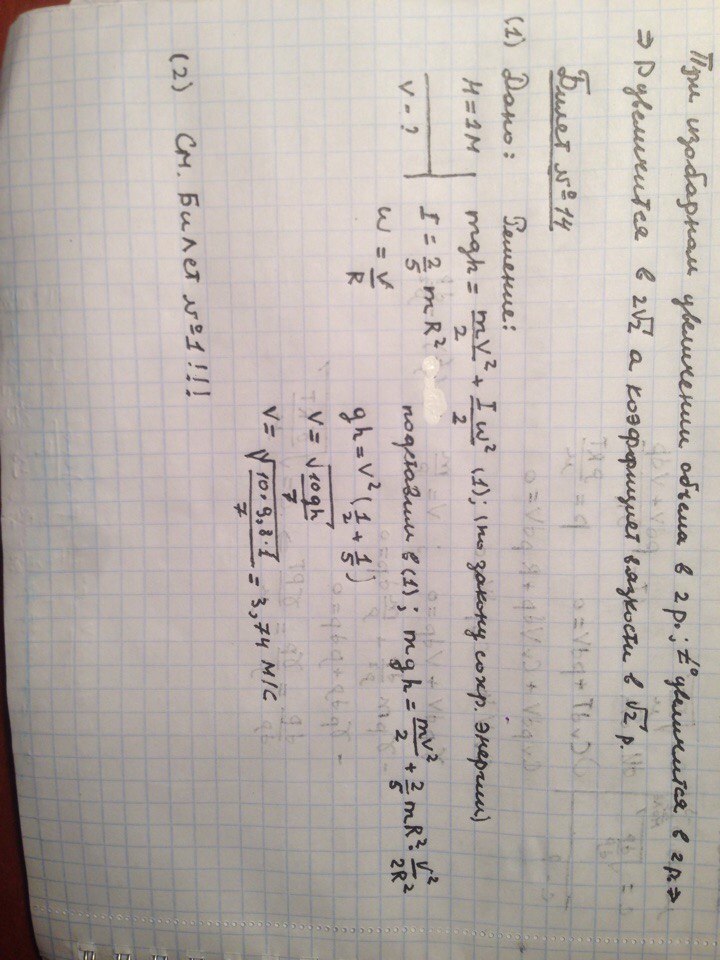 При изобарном увеличении объема в 2 р.; t° увеличится в 2 р. ⇒
⇒ D увеличится в 2√2 а коэффициет вязкости в √2 р.
Билет №14
(1) Дано: Решение:
H = 1м mgh = mV²/2 + Iω²/2 (1); (по закону сохр. энергии)
V - ? I = 2/5 mR² подставим в (1); mgh = mv²/2 + 2/5 mR² · v²/2R²
ω = V/R gh = v²(1/2 + 1/5)
v = √10gh/7
v = √10·9,8·1/7 = 3,74 м/с
(2) См. Билет №1!!!